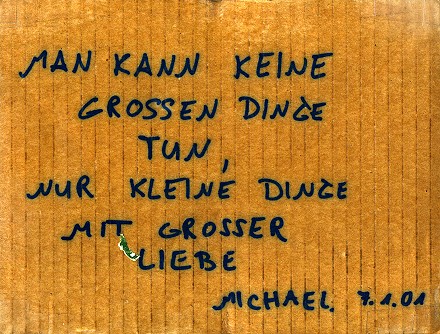 MAN KANN KEINE
GROSSEN DINGE
TUN,
NUR KLEINE DINGE
MIT GROSSER
LIEBE
MICHAEL. 7.1.01